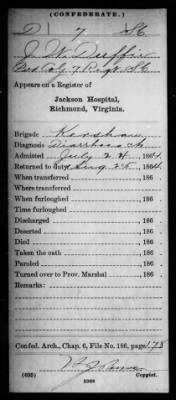 (CONFEDERATE.)
D | 7 | S C
J. W. Duffie
Appears on a Register of
Jackson Hospital,
Richmond, Virginia.
Brigade Kershaw
Diagnosis Diarrhoea ch
Admitted July 24, 1864
Returned to duty Aug 25, 1864
When transferred , 186 .
Where transferred
When furloughed , 186 .
Time furloughed
Discharged , 186 .
Deserted , 186 .
Died , 186 .
Taken the oath , 186 .
Paroled , 186 .
Turned over to Prov. Marshal , 186 .
Remarks:
Confed. Arch., Chap. 6, File No. 186, page 178
(635)
Copyist.